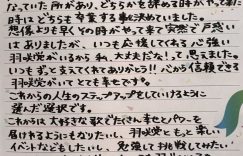 なっていた所があり、どちらかを辞める時がやって来た
時にはどちらも卒業する事に決めていました。
想像よりも早くその時がやって来て突然で戸惑い
はありましたが、いつも応援してくれる心強い
羽咲党がいるから私、大丈夫だな!って思えました。
いつもずっと支えてくれてありがとう!!心から信頼できる
羽咲党がいてとても幸せです。
これからの人生のステップアップをしていけるように
選んだ選択です。
これからは大好きな歌でたくさん幸せとパワーを
届けれるようにもなりたいし、羽咲党ともっと楽しい
イベントなどもしたいし、勉強して挑戦してみたい